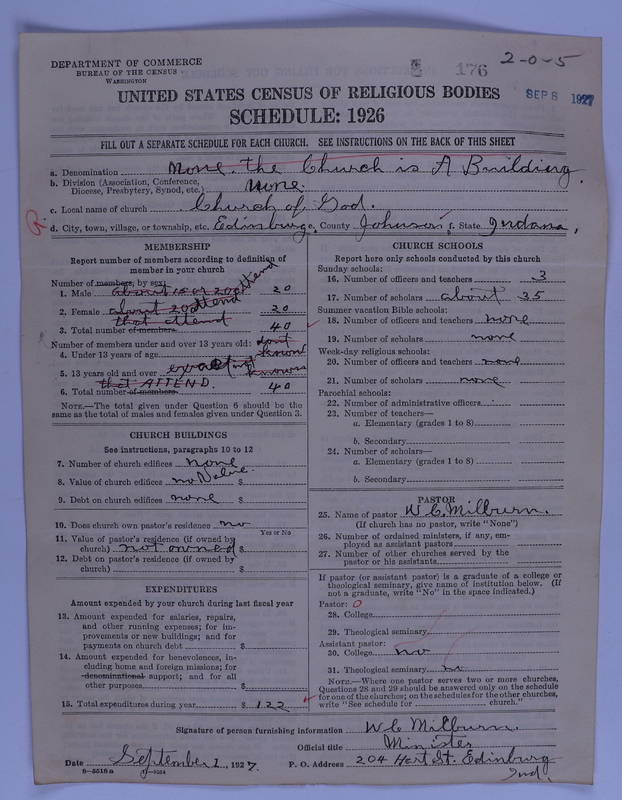 DEPARTMENT OF COMMERCE
BUREAU OF THE CENSUS
WASHINGTON
176
2-0-5
UNITED STATES CENSUS OF RELIGIOUS BODIES
SEP 8 1927
SCHEDULE: 1926
FILL OUT A SEPARATE SCHEDULE FOR EACH CHURCH. SEE INSTRUCTIONS ON THE BACK OF THIS SHEET
a. Denomination None. the Church is A Building.
b. Division (Association, Conference, Diocese, Presbytery, Synod, etc.) None.
c. Local name of church Church of God.
d. City, town, village, or township, etc. Edinburg, County Johnson, State Indana,
MEMBERSHIP
Report number of members according to definition of
member in your church
Number of members, by sex:
1. Male about 15 or 20 attend 20
2. Female about 20 attend 20
that attend
3. Total number of members 40
Number of members under and over 13 years old: dont
4. Under 13 years of age know
5. 13 years old and over
that ATTEND.
6. Total number of members 40
NOTE.—The total given under Question 6 should be the
same as the total of males and females given under Question 3.
CHURCH BUILDINGS
See instructions, paragraphs 10 to 12
7. Number of church edifices none
8. Value of church edifices no Value. $
9. Debt on church edifices none $
10. Does church own pastor's residence no
Yes or No
11. Value of pastor's residence (if owned by
church) not owned $
12. Debt on pastor's residence (if owned by
church) $
EXPENDITURES
Amount expended by your church during last fiscal year
13. Amount expended for salaries, repairs,
and other running expenses; for im-
provements or new buildings; and for
payments on church debt $
14. Amount expended for benevolences, in-
cluding home and foreign missions; for
denominational support; and for all
other purposes $
15. Total expenditures during year $ 122
CHURCH SCHOOLS
Report here only schools conducted by this church
Sunday schools:
16. Number of officers and teachers 3
17. Number of scholars about 35
Summer vacation Bible schools:
18. Number of officers and teachers none
19. Number of scholars none
Week-day religious schools:
20. Number of officers and teachers none
21. Number of scholars none
Parochial schools:
22. Number of administrative officers
23. Number of teachers—
a. Elementary (grades 1 to 8)
b. Secondary
24. Number of scholars—
a. Elementary (grades 1 to 8)
b. Secondary
PASTOR
25. Name of pastor W. C. Milburn.
(If church has no pastor, write "None")
26. Number of ordained ministers, if any, em-
ployed as assistant pastors
27. Number of other churches served by the
pastor or his assistants
If pastor (or assistant pastor) is a graduate of a college or
theological seminary, give name of institution below. (If
not a graduate, write "No" in the space indicated.)
Pastor: 0
28. College
29. Theological seminary
Assistant pastor:
30. College no
31. Theological seminary no
NOTE.—Where one pastor serves two or more churches,
Questions 28 and 29 should be answered only on the schedule
for one of the churches; on the schedules for the other churches,
write "See schedule for church."
Signature of person furnishing information W C Milburn.
Official title Minister
Date September 1, 1927. P. O. Address 204 Hart St. Edinburg
Ind.
8—5518a